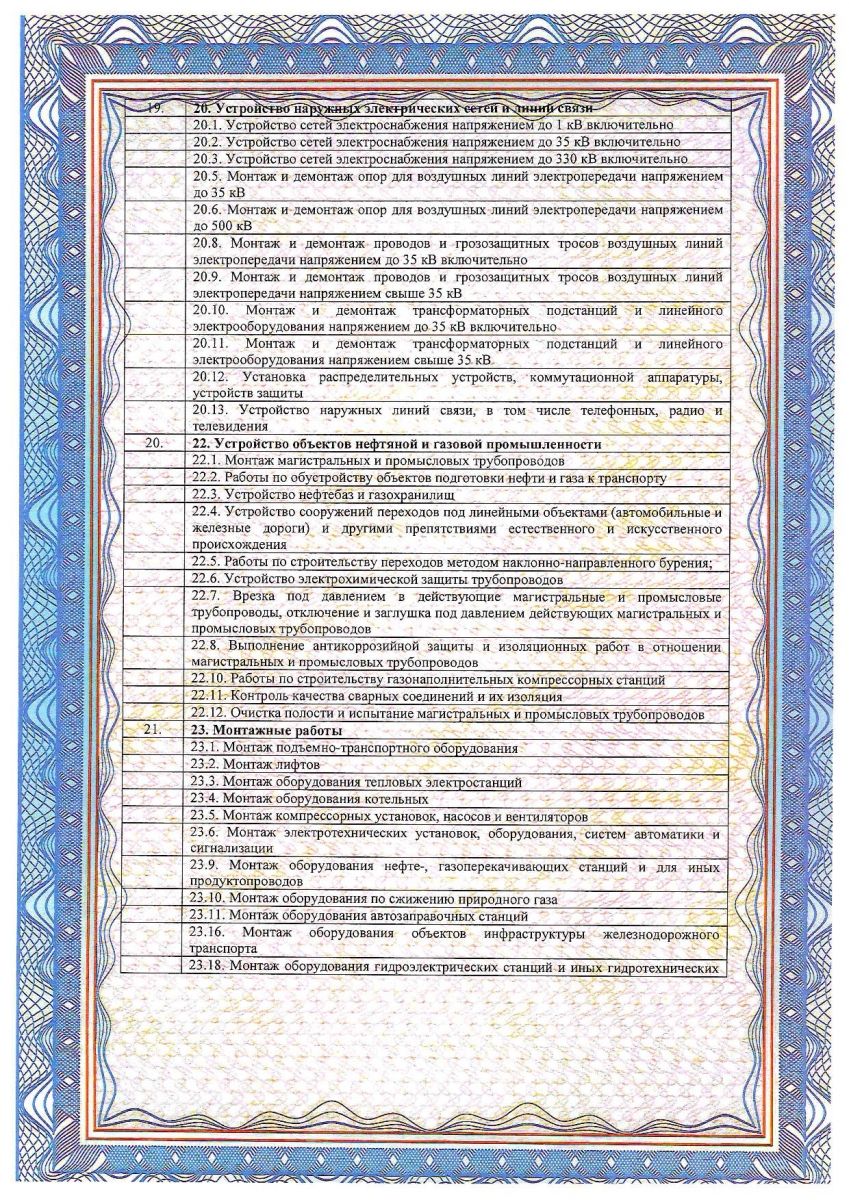 19. 20. Устройство наружных электрических сетей и линий связи
20.1. Устройство сетей электроснабжения напряжением до 1 кВ включительно
20.2. Устройство сетей электроснабжения напряжением до 35 кВ включительно
20.3. Устройство сетей электроснабжения напряжением до 330 кВ включительно
20.5. Монтаж и демонтаж опор для воздушных линий электропередачи напряжением
до 35 кВ
20.6. Монтаж и демонтаж опор для воздушных линий электропередачи напряжением
до 500 кВ
20.8. Монтаж и демонтаж проводов и грозозащитных тросов воздушных линий
электропередачи напряжением до 35 кВ включительно
20.9. Монтаж и демонтаж проводов и грозозащитных тросов воздушных линий
электропередачи напряжением свыше 35 кВ
20.10. Монтаж и демонтаж трансформаторных подстанций и линейного
электрооборудования напряжением до 35 кВ включительно
20.11. Монтаж и демонтаж трансформаторных подстанций и линейного
электрооборудования напряжением свыше 35 кВ
20.12. Установка распределительных устройств, коммутационной аппаратуры,
устройств защиты
20.13. Устройство наружных линий связи, в том числе телефонных, радио и
телевидения
20. 22. Устройство объектов нефтяной и газовой промышленности
22.1. Монтаж магистральных и промысловых трубопроводов
22.2. Работы по обустройству объектов подготовки нефти и газа к транспорту
22.3. Устройство нефтебаз и газохранилищ
22.4. Устройство сооружений переходов под линейными объектами (автомобильные и
железные дороги) и другими препятствиями естественного и искусственного
происхождения
22.5. Работы по строительству переходов методом наклонно-направленного бурения;
22.6. Устройство электрохимической защиты трубопроводов
22.7. Врезка под давлением в действующие магистральные и промысловые
трубопроводы, отключение и заглушка под давлением действующих магистральных и
промысловых трубопроводов
22.8. Выполнение антикоррозийной защиты и изоляционных работ в отношении
магистральных и промысловых трубопроводов
22.10. Работы по строительству газонаполнительных компрессорных станций
22.11. Контроль качества сварных соединений и их изоляция
22.12. Очистка полости и испытание магистральных и промысловых трубопроводов
21. 23. Монтажные работы
23.1. Монтаж подъемно-транспортного оборудования
23.2. Монтаж лифтов
23.3. Монтаж оборудования тепловых электростанций
23.4. Монтаж оборудования котельных
23.5. Монтаж компрессорных установок, насосов и вентиляторов
23.6. Монтаж электротехнических установок, оборудования, систем автоматики и
сигнализации
23.9. Монтаж оборудования нефте-, газоперекачивающих станций и для иных
продуктопроводов
23.10. Монтаж оборудования по сжижению природного газа
23.11. Монтаж оборудования автозаправочных станций
23.16. Монтаж оборудования объектов инфраструктуры железнодорожного
транспорта
23.18. Монтаж оборудования гидроэлектрических станций и иных гидротехнических